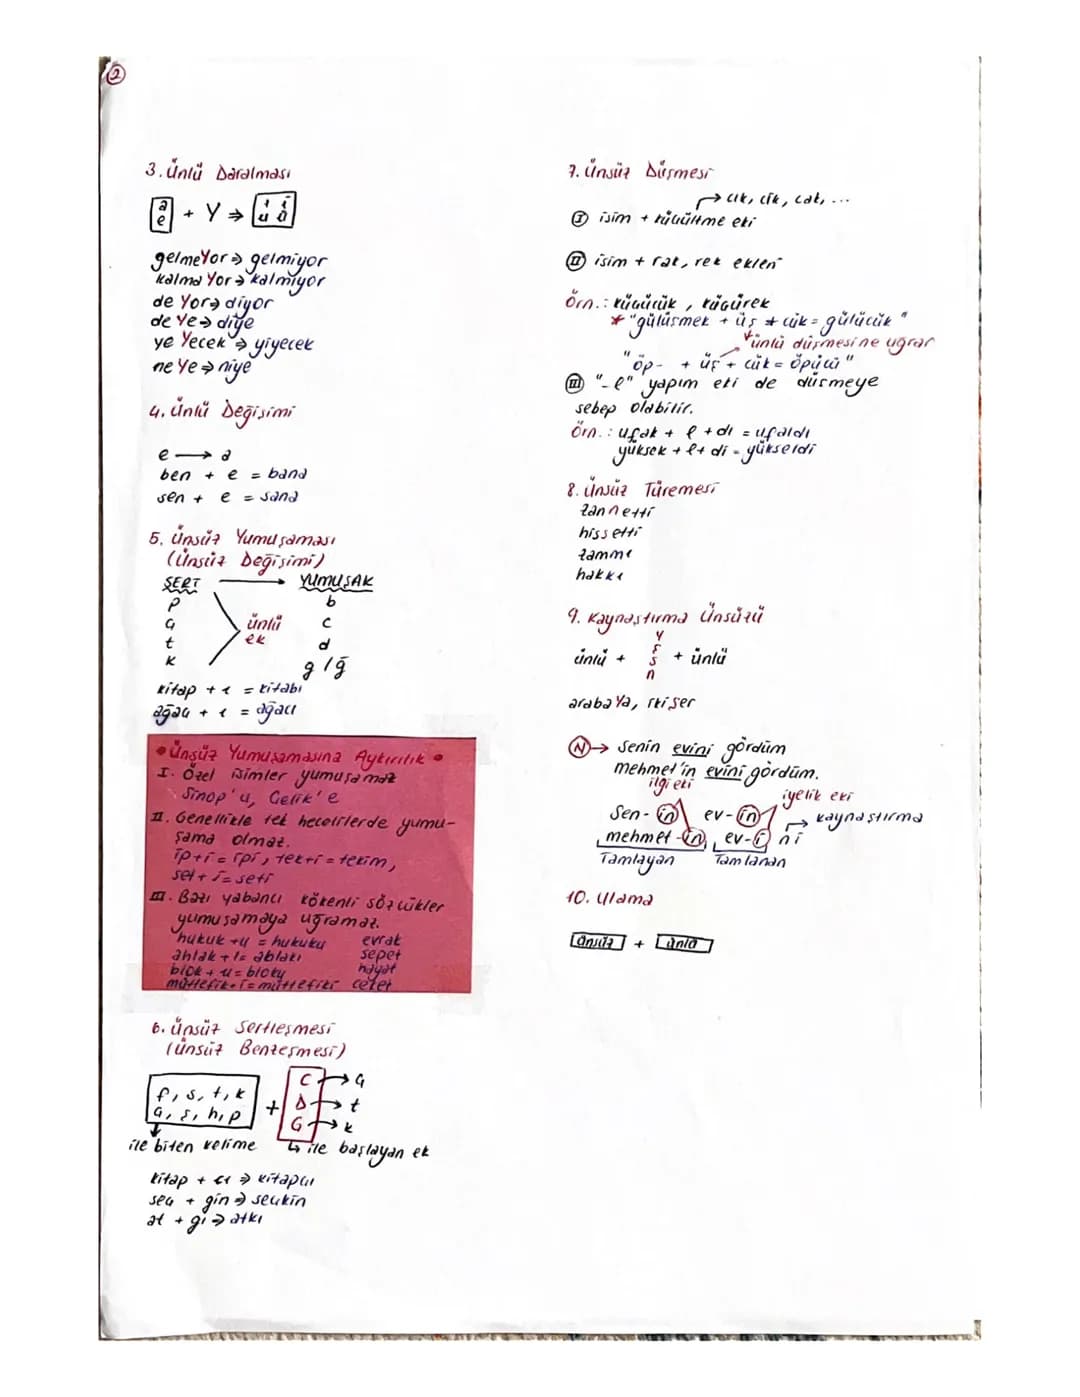 2
3. Ünlü Daralması
a
e + Y ⇒ ı i
u ü
gelmeYor ⇒ gelmiyor
kalma Yor → kalmıyor
de Yor → diyor
de Ye → diye
ye Yecek → yiyecek
ne Ye ⇒ niye
4. Ünlü Değişimi
e → a
ben + e = bana
sen + e = sana
5. Ünsüz Yumuşaması
(Ünsüz Değişimi)
SERT → YUMUŞAK
p b
ç ünlü c
t ek d
k g/ğ
kitap + ı = kitabı
ağaç + ı = ağacı
• Ünsüz Yumuşamasına Aykırılık •
I. Özel isimler yumuşamaz
Sinop'u, Çelik'e
II. Genellikle tek hecelilerde yumu-
şama olmaz.
ip+i = ipi, tek+i = tekim,
set + i = seti
III. Bazı yabancı kökenli sözcükler
yumuşamaya uğramaz.
hukuk +u = hukuku evrak
ahlak + ı = ahlakı sepet
blok + u = bloku hayat
müttefik + i = müttefiki ceket
6. Ünsüz Sertleşmesi
(Ünsüz Benzeşmesi)
f, s, t, k
ç, ş, h, p + C → ç
D → t
G → k
ile biten kelime ↳ ile başlayan ek
kitap + cı ⇒ kitapçı
seç + gin ⇒ seçkin
at + gı ⇒ atkı
7. Ünsüz Düşmesi
→ cık, cik, cak, ...
I isim + küçültme eki
II isim + rak, rek ekleri
Örn.: küçücük, küçürek
* "gülüşmek + üş + cük = gülücük"
ünlü düşmesine uğrar
"öp- + üş + cük = öpücü"
III "-l" yapım eki de düşmeye
sebep olabilir.
Örn.: ufak + l + dı = ufaldı
yüksek + l + di = yükseldi
8. Ünsüz Türemesi
zannetti
hissetti
zammı
hakkı
9. Kaynaştırma Ünsüzü
y
ünlü + ş + ünlü
s
n
arabaYa, ikişer
N → Senin evini gördüm
Mehmet'in evini gördüm.
ilgi eki iyelik eki
Sen-in ev-in → kaynaştırma
mehmet-in ev-i ni
Tamlayan Tamlanan
10. Ulama
ünsüz + ünlü